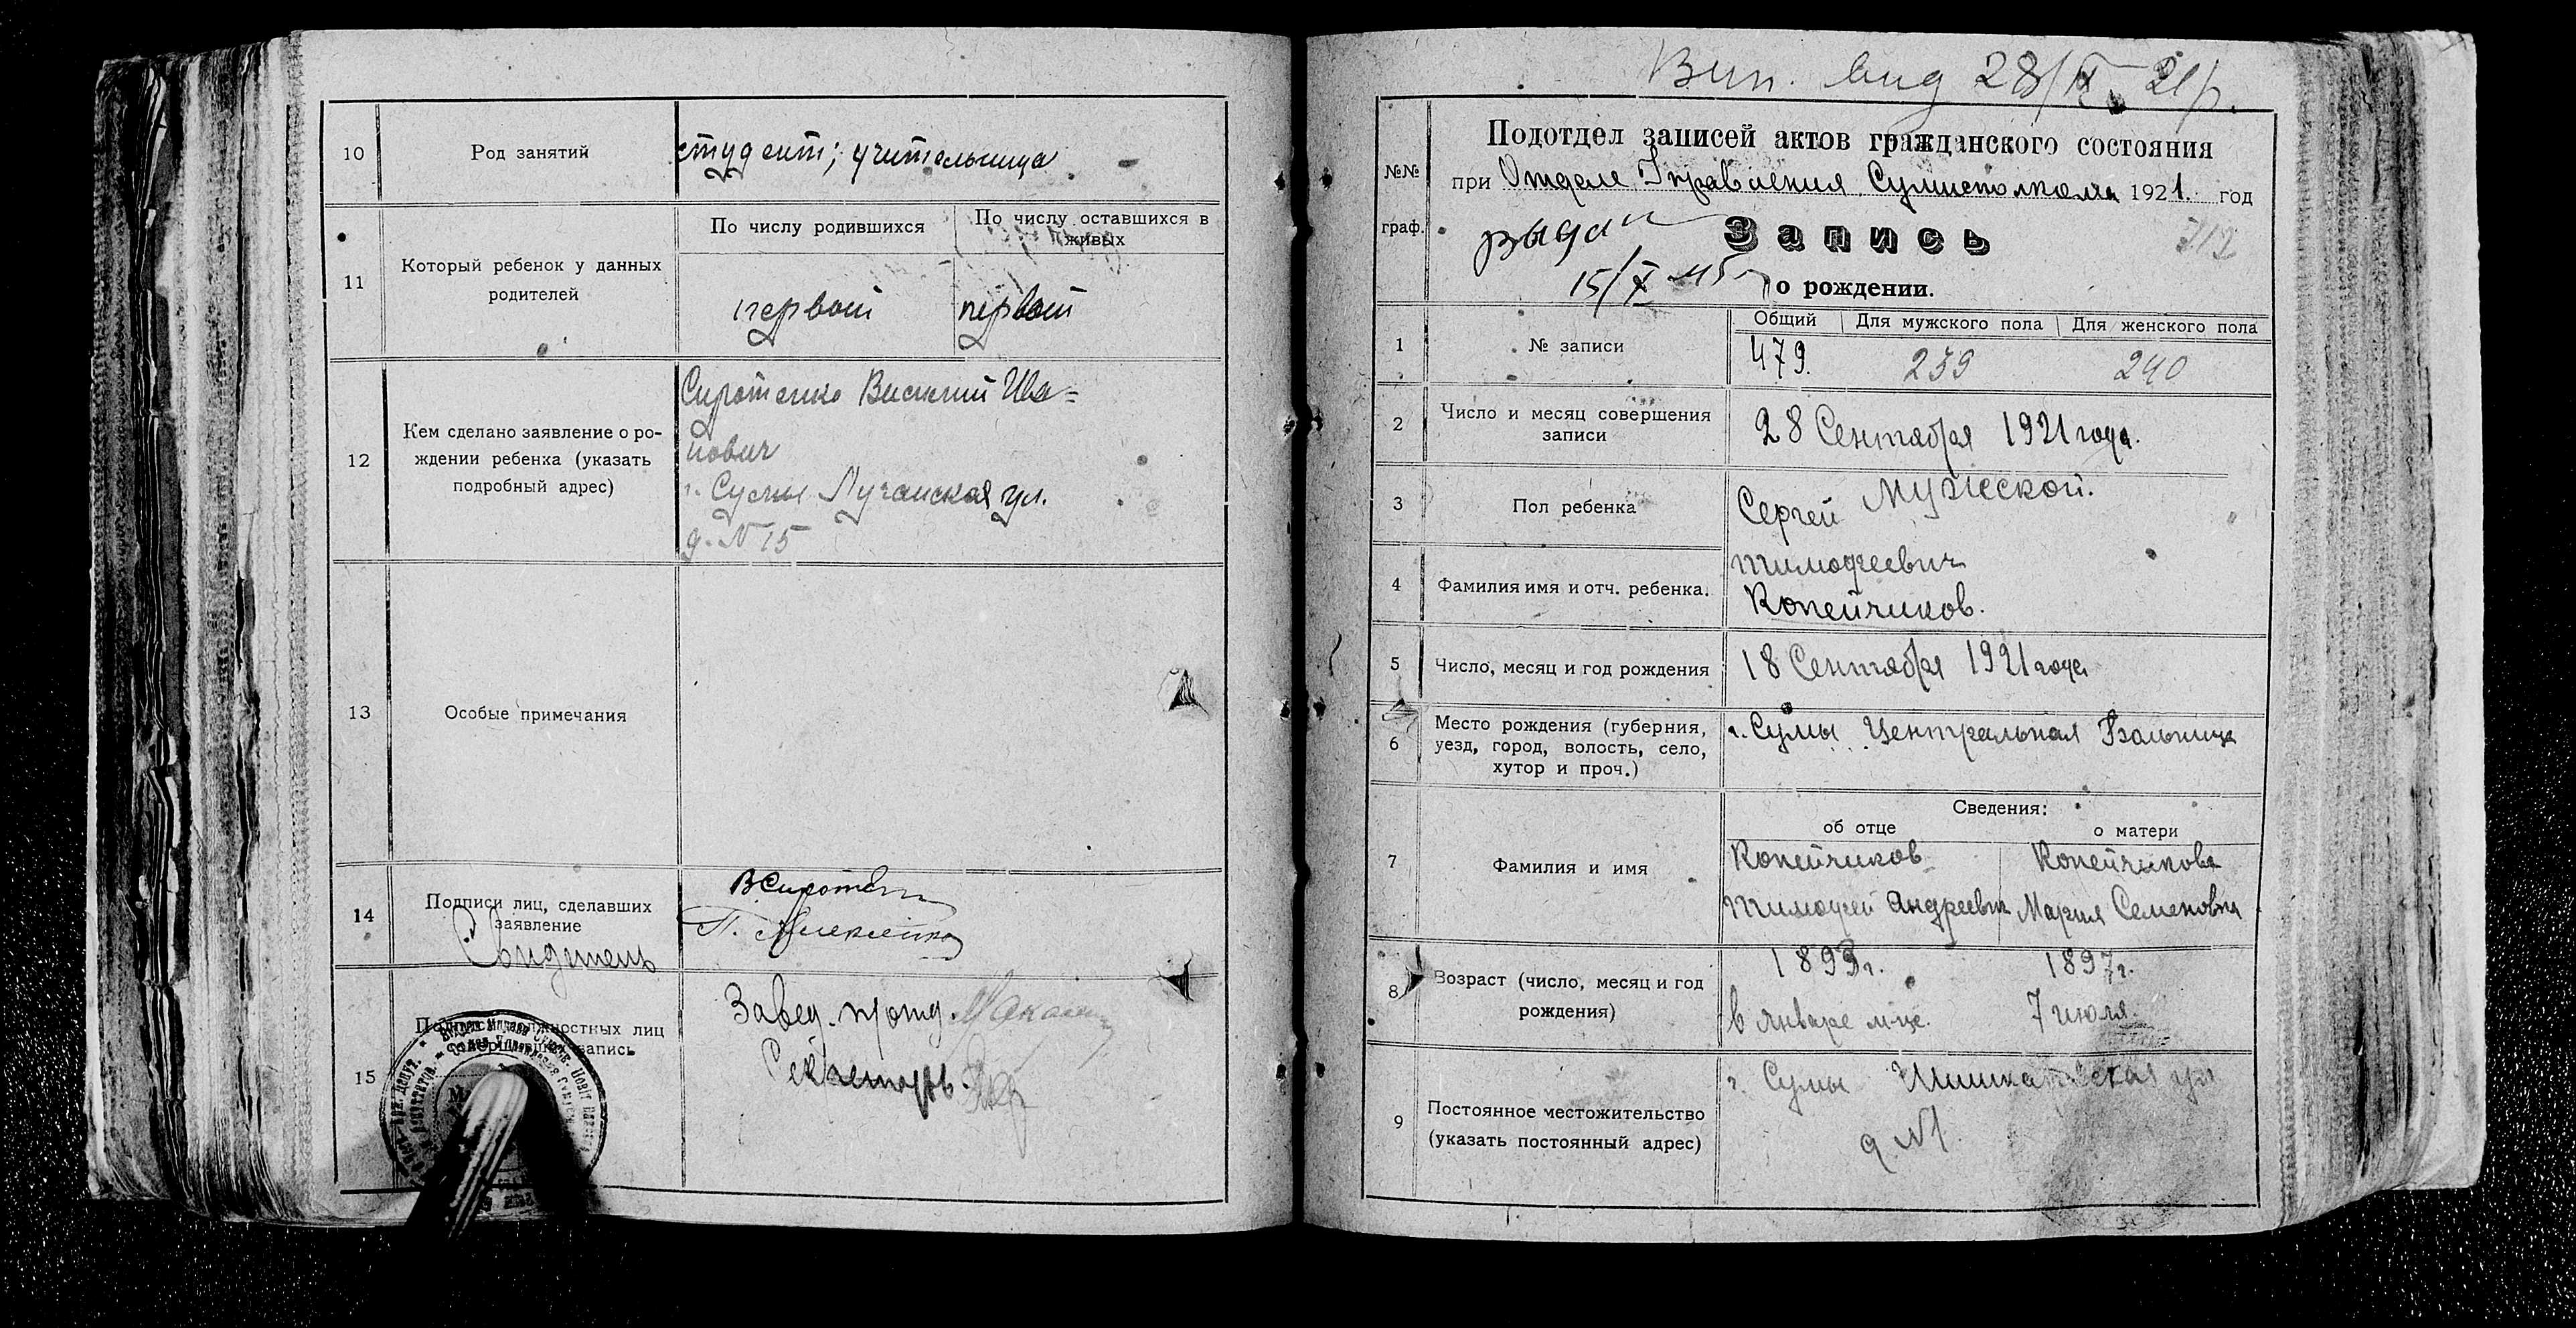 10
Род занятий
студент; учительница
11
Который ребенок у данных
родителей
По числу родившихся
По числу оставшихся в
живых
первый
первый
12
Кем сделано заявление о ро-
ждении ребенка (указать
подробный адрес)
Сиротенко Василий Ива=
нович
г. Сумы Луганская ул.
д. N 15
13
Особые примечания
14
Подписи лиц, сделавших
заявление
Свидтель
В Сиротен
15
Подписи должностных лиц
совершивших запись
Завед. п/отд.
Секретарь
Вип. вид 28/IX 21 р.
№№
граф.
Подотдел записей актов гражданского состояния
при Отделе Управления Сумисполкома 1921. год
Запись
312
15/X 45
о рождении.
1
№ записи
Общий
Для мужского пола
Для женского пола
479.
239
240
2
Число и месяц совершения
записи
28 Сентября 1921 года.
3
Пол ребенка
Мужеской.
4
Фамилия имя и отч. ребенка.
Сергей
Тимофеевич
Копейчиков.
5
Число, месяц и год рождения
18 Сентября 1921 года
6
Место рождения (губерния,
уезд, город, волость, село,
хутор и проч.)
г. Сумы Центральная Больница
7
Фамилия и имя
Сведения:
об отце
о матери
Копейчиков
Тимофей Андреевич
Копейчикова
Мария Семеновна
8
Возраст (число, месяц и год
рождения)
1893 г.
в январе м-це.
1897 г.
7 июля.
9
Постоянное местожительство
(указать постоянный адрес)
г. Сумы ул
д N 1.